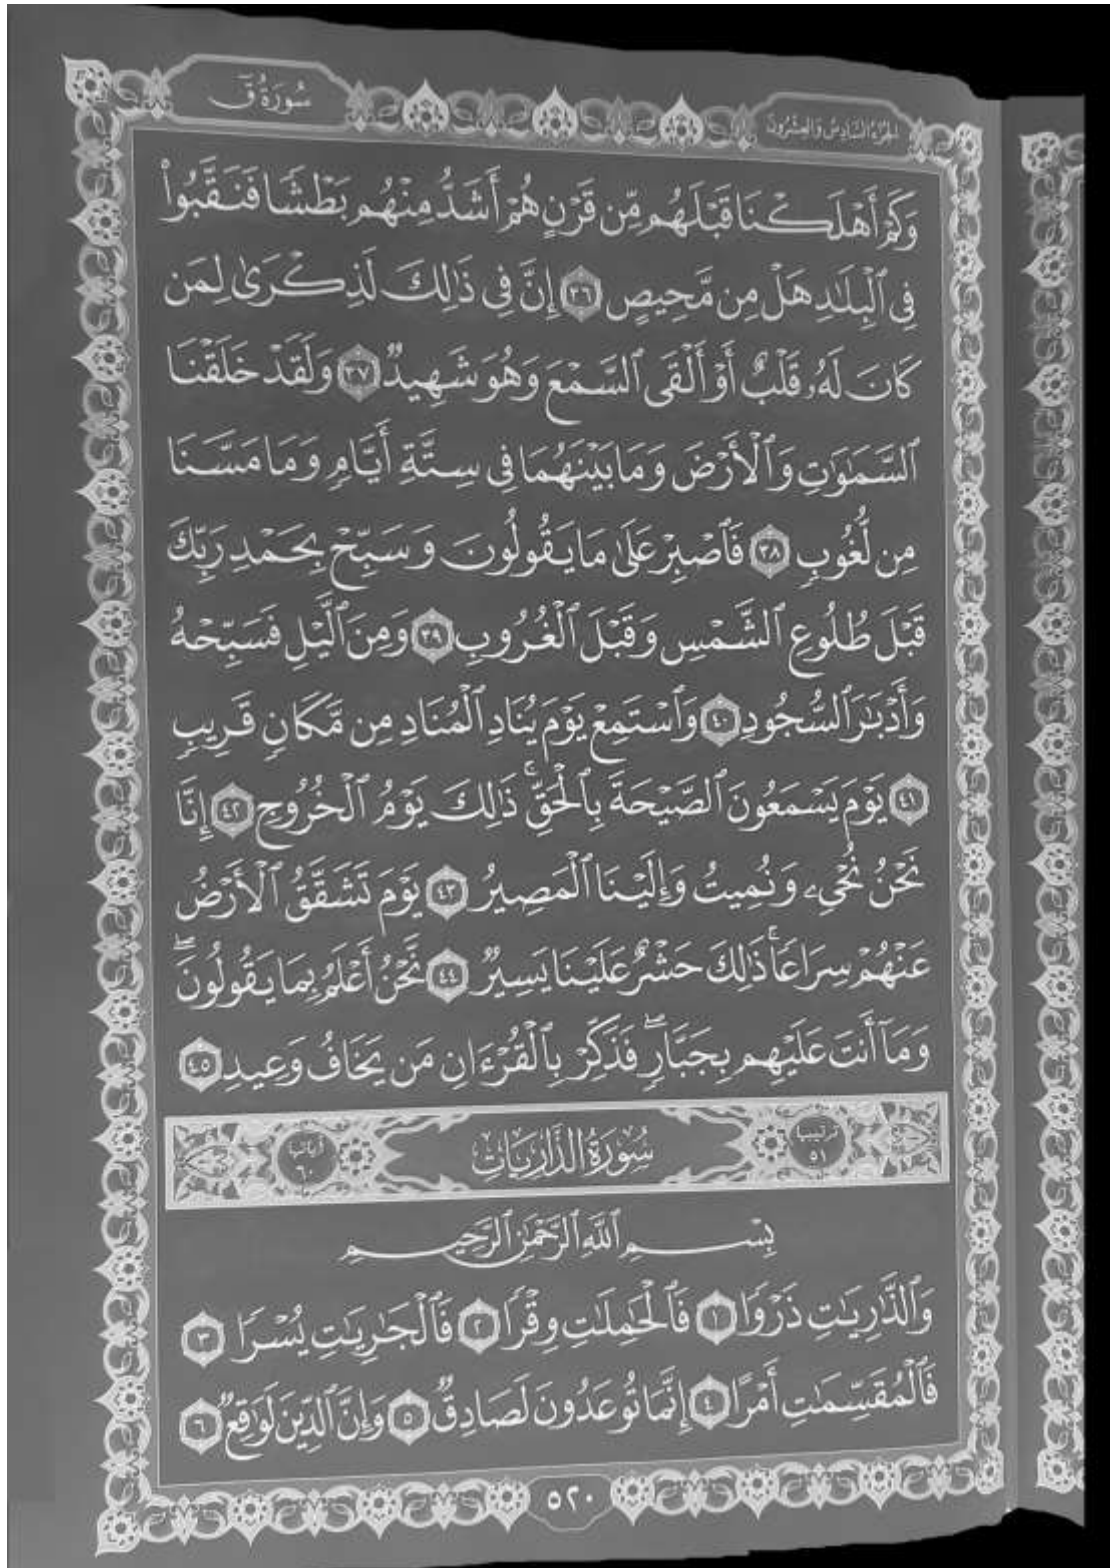 الجزء السادس والعشرون
سُورَةُ قٓ
وَكَمْ أَهْلَكْنَا قَبْلَهُم مِّن قَرْنٍ هُمْ أَشَدُّ مِنْهُم بَطْشًا فَنَقَّبُوا۟
فِى ٱلْبِلَٰدِ هَلْ مِن مَّحِيصٍ ٣٦ إِنَّ فِى ذَٰلِكَ لَذِكْرَىٰ لِمَن
كَانَ لَهُۥ قَلْبٌ أَوْ أَلْقَى ٱلسَّمْعَ وَهُوَ شَهِيدٌ ٣٧ وَلَقَدْ خَلَقْنَا
ٱلسَّمَٰوَٰتِ وَٱلْأَرْضَ وَمَا بَيْنَهُمَا فِى سِتَّةِ أَيَّامٍ وَمَا مَسَّنَا
مِن لُّغُوبٍ ٣٨ فَٱصْبِرْ عَلَىٰ مَا يَقُولُونَ وَسَبِّحْ بِحَمْدِ رَبِّكَ
قَبْلَ طُلُوعِ ٱلشَّمْسِ وَقَبْلَ ٱلْغُرُوبِ ٣٩ وَمِنَ ٱلَّيْلِ فَسَبِّحْهُ
وَأَدْبَٰرَ ٱلسُّجُودِ ٤٠ وَٱسْتَمِعْ يَوْمَ يُنَادِ ٱلْمُنَادِ مِن مَّكَانٍ قَرِيبٍ
٤١ يَوْمَ يَسْمَعُونَ ٱلصَّيْحَةَ بِٱلْحَقِّ ۚ ذَٰلِكَ يَوْمُ ٱلْخُرُوجِ ٤٢ إِنَّا
نَحْنُ نُحْىِۦ وَنُمِيتُ وَإِلَيْنَا ٱلْمَصِيرُ ٤٣ يَوْمَ تَشَقَّقُ ٱلْأَرْضُ
عَنْهُمْ سِرَاعًا ۚ ذَٰلِكَ حَشْرٌ عَلَيْنَا يَسِيرٌ ٤٤ نَّحْنُ أَعْلَمُ بِمَا يَقُولُونَ ۖ
وَمَآ أَنتَ عَلَيْهِم بِجَبَّارٍ ۖ فَذَكِّرْ بِٱلْقُرْءَانِ مَن يَخَافُ وَعِيدِ ٤٥
ترتيبها ٥١
سُورَةُ الذَّارِيَاتِ
آياتها ٦٠
بِسْمِ ٱللَّهِ ٱلرَّحْمَٰنِ ٱلرَّحِيمِ
وَٱلذَّٰرِيَٰتِ ذَرْوًا ١ فَٱلْحَٰمِلَٰتِ وِقْرًا ٢ فَٱلْجَٰرِيَٰتِ يُسْرًا ٣
فَٱلْمُقَسِّمَٰتِ أَمْرًا ٤ إِنَّمَا تُوعَدُونَ لَصَادِقٌ ٥ وَإِنَّ ٱلدِّينَ لَوَٰقِعٌ ٦
٥٢٠